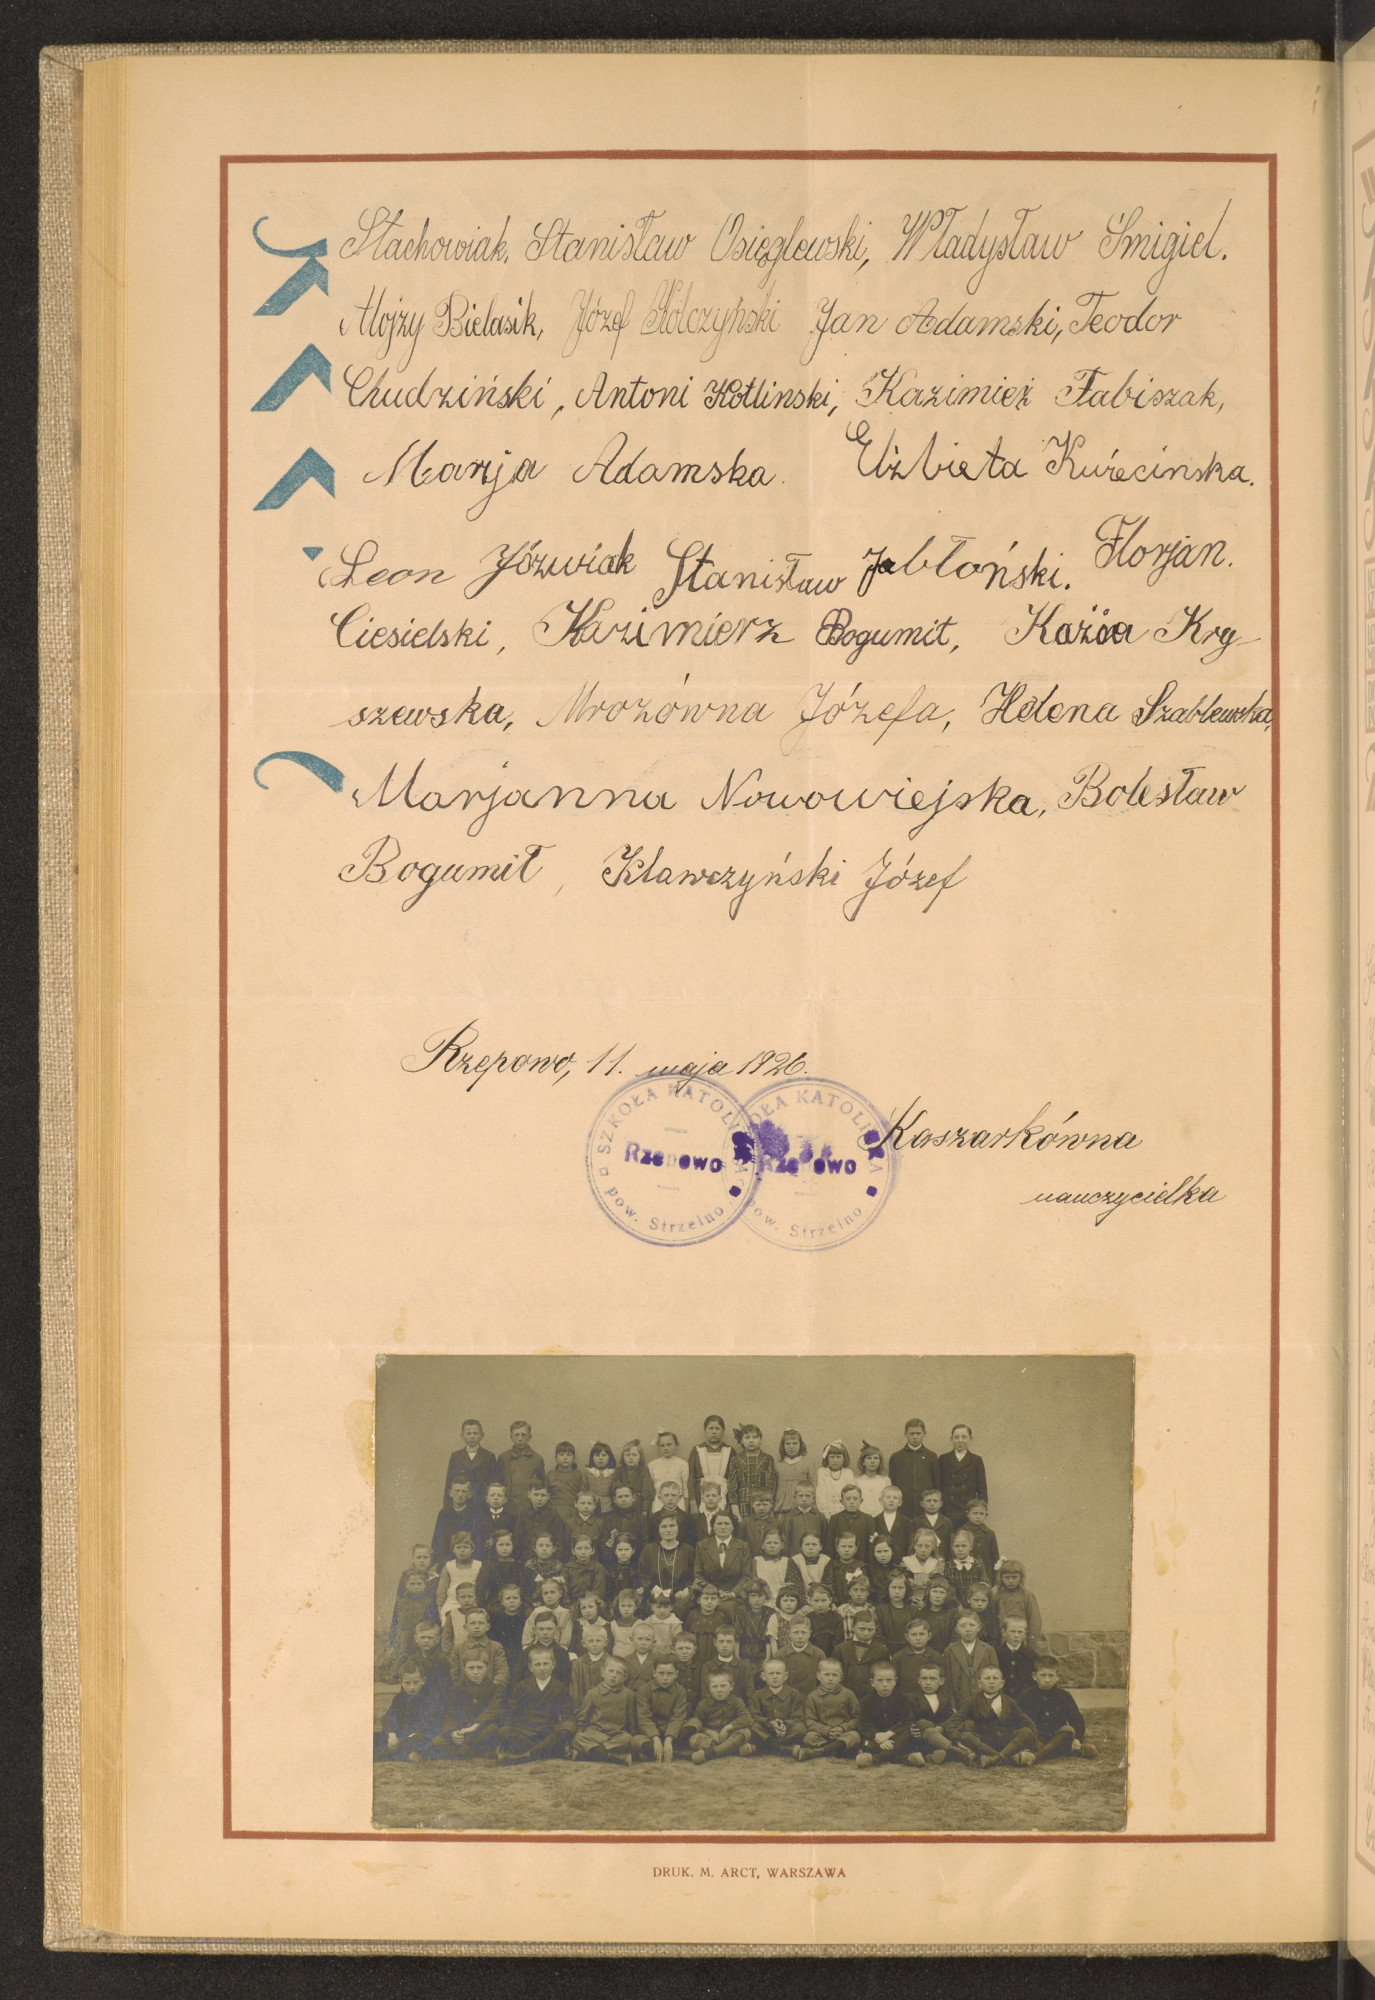 Stachowiak. Stanisław Osięglewski, Władysław Śmigiel.
Alojzy Bielasik, Józef Kólczyński Jan Adamski, Teodor
Chudziński, Antoni Kotlinski, Kazimież Fabiszak,
Marja Adamska. Elżbieta Kurecinska.
Leon Jóźwiak Stanisław Jabłoński. Florjan.
Ciesielski, Kazimierz Bogumit, Kazia Kry-
szewska, Mrozówna Józefa, Helena Szablewska,
Marjanna Nowowiejska, Bolesław
Bogumił, Klawczyński Józef
Rzepowo, 11. maja 1926.
SZKOŁA KATOLICKA
Rzepowo
pow. Strzelno
SZKOŁA KATOLICKA
Rzepowo
pow. Strzelno
Kaszarkówna
nauczycielka
DRUK. M. ARCT, WARSZAWA